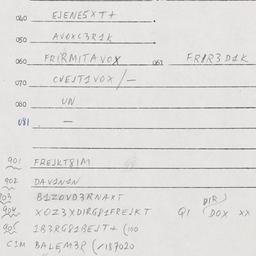 040 EJENESXT+
050 AVOXC3R1K
060 FRIRMITAVOX 061 FRIR3D1K
070 CVEJT1VOX/–
080 UN
081 –
901 FREJKT81M
902 DAVININ
903 B1ZOVD3RNAXT
904 XOZ3XDIRG81FREJKT Q1 (DOX XX
DIR)
905 1R3RG81REJT+ (100
C1M BALEM3R (/187020